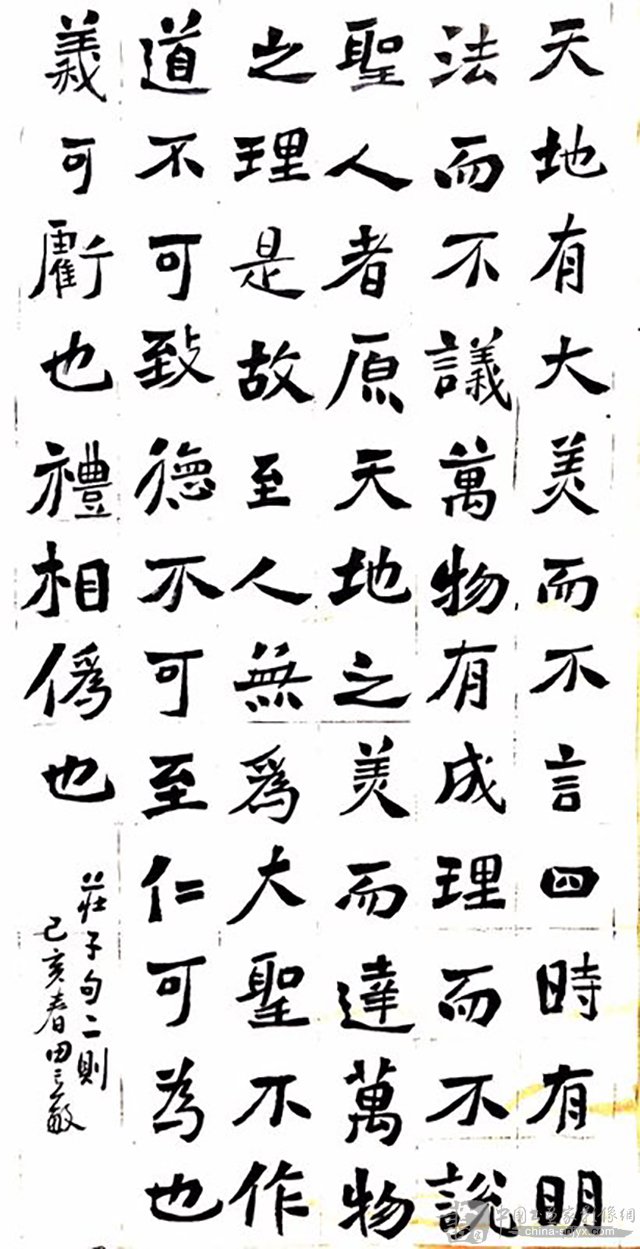 天地有大美而不言四時有明
法而不議萬物有成理而不說
聖人者原天地之美而達萬物
之理是故至人無爲大聖不作
道不可致德不可至仁可為也
義可虧也禮相偽也
莊子句二則
己亥春田三敏
中国书画家影像网
china-shyyx.com